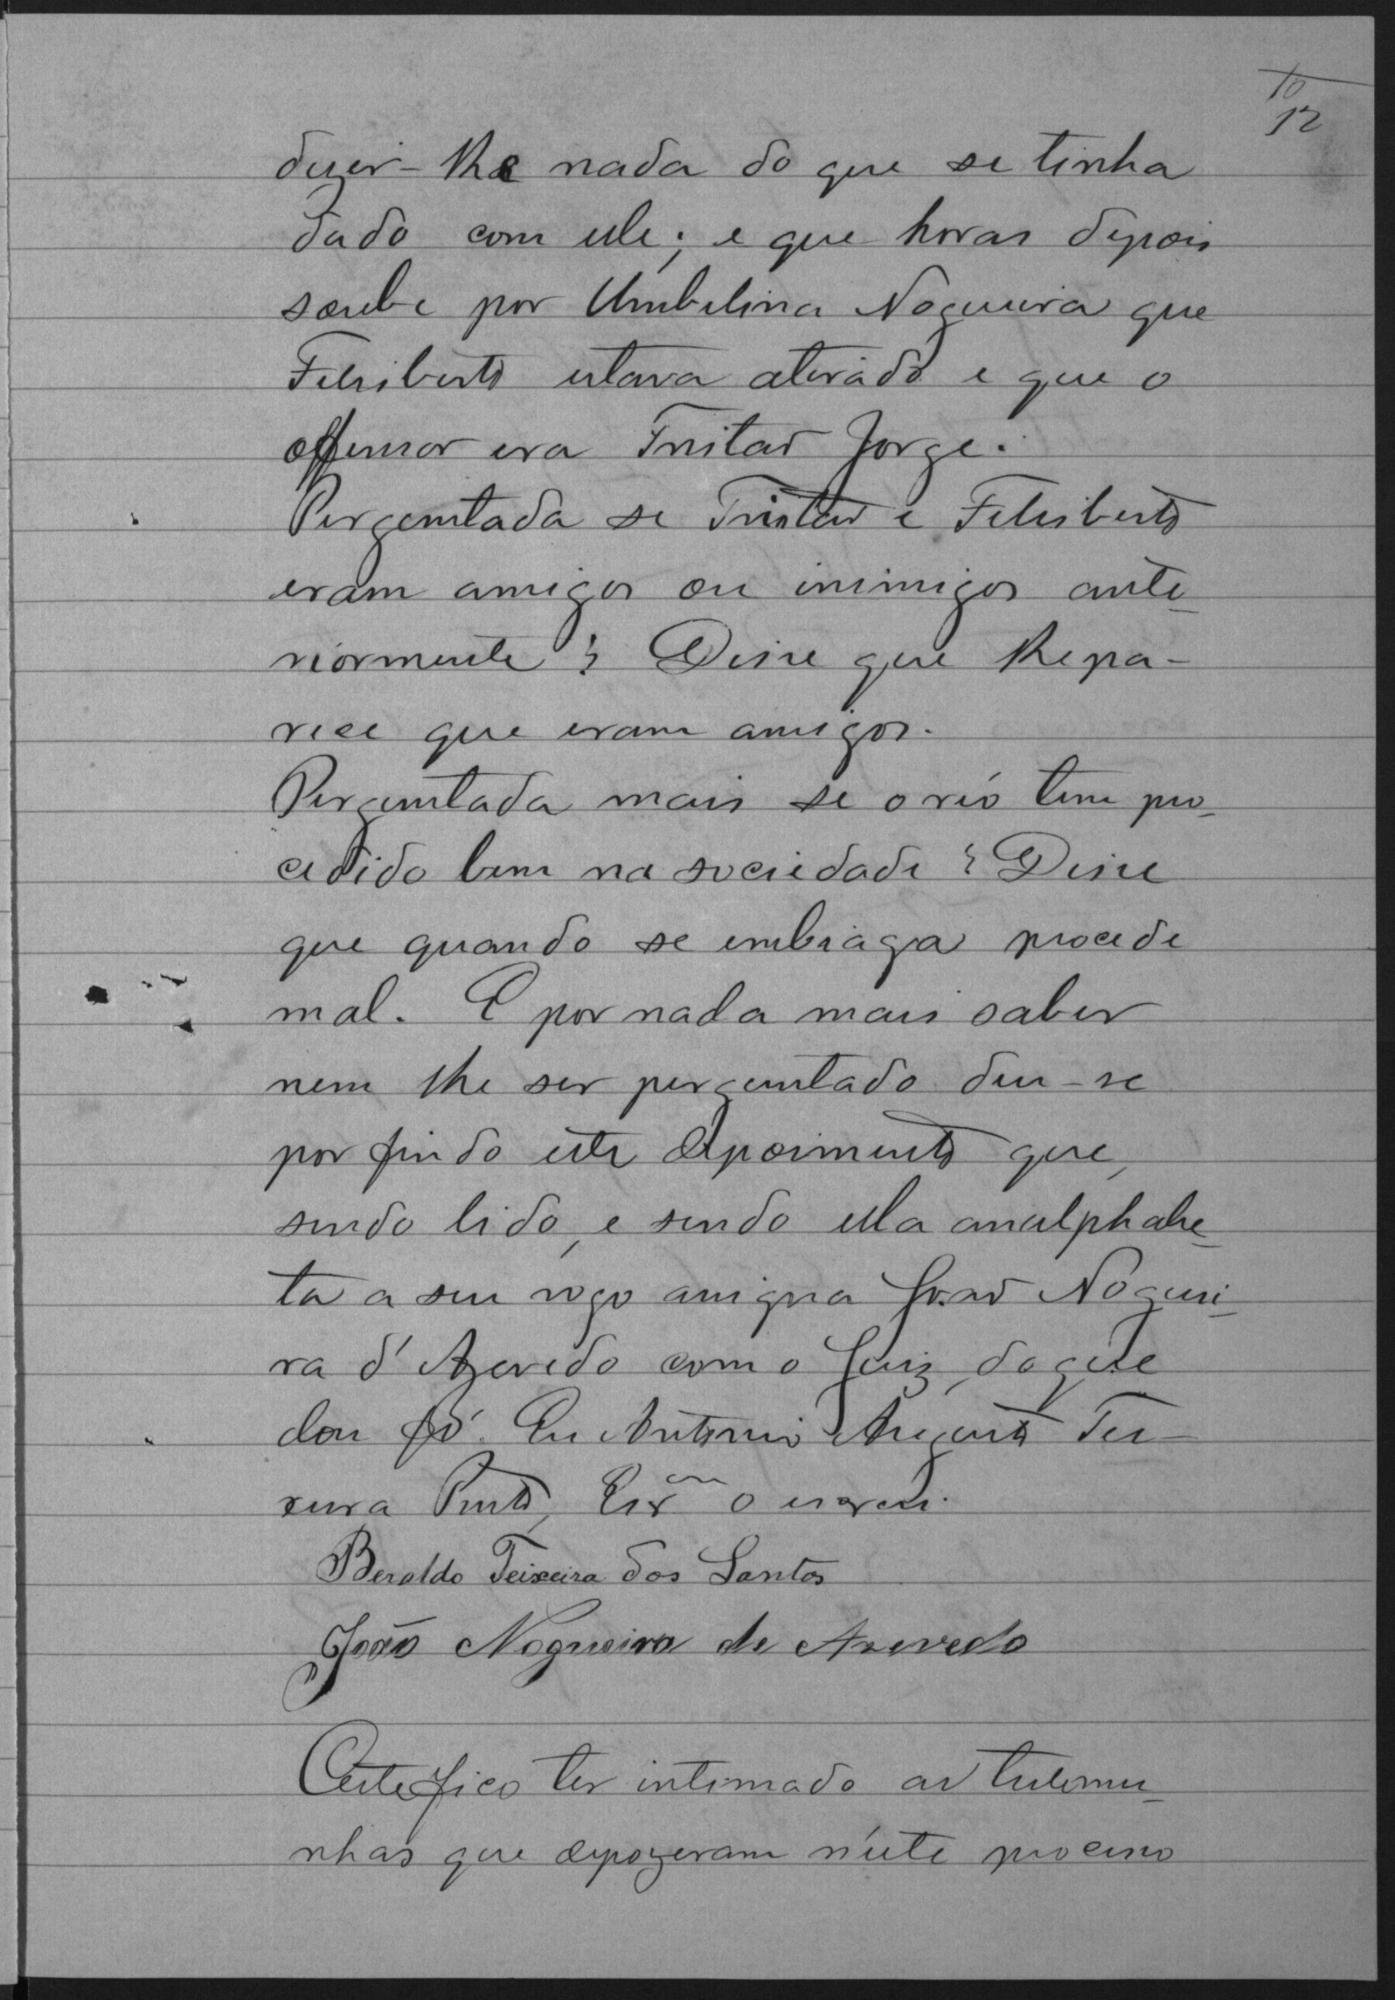 10
12
dizer-lhe nada do que se tinha
dado com elle; e que horas depois
soube por Umbelina Nogueira que
Felisberto estava atirado e que o
offensor era Tristão Jorge.
Perguntada se Tristão e Felisberto
eram amigos ou inimigos ante-
riormente? Disse que lhe pa-
rece que eram amigos.
Perguntada mais se o réo tem pro-
cedido bem na sociedade? Disse
que quando se embriaga procede
mal. E por nada mais saber
nem lhe ser perguntado deu-se
por findo este depoimento que,
sendo lido, e sendo ella analphabe-
ta a seu rogo assigna João Noguei-
ra d'Azevedo com o Juiz, do que
dou fé. Eu Antonio Augusto Tei-
xeira Pinto, Escrm o escrevi.
Beraldo Teixeira dos Santos
João Nogueira de Azevedo
Certefico ter intimado as testemu-
nhas que depozeram n'este processo